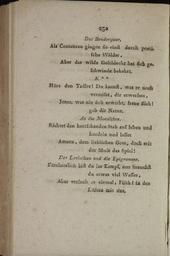 252
Das Brüderpaar.
Als Centauren gingen sie einst durch poeti-
sche Wälder,
Aber das wilde Geschlecht hat sich ge-
schwinde bekehrt.
K**
Höre den Tadler! Du kannst, was er noch
vermisst, dir erwerben,
Jenes, was nie sich erwirbt, freue dich!
gab dir Natur.
An die Moralisten.
Richtet den herrschenden Stab auf leben und
handeln und lasset
Amorn, dem lieblichen Gott, doch mit
der Muse das Spiel!
Der Leviathan und die Epigramme.
Fürchterlich bist du im Kampf, nur brauchst
du etwas viel Wasser,
Aber versuch es einmal, Fisch! in den
Lüften mit uns.